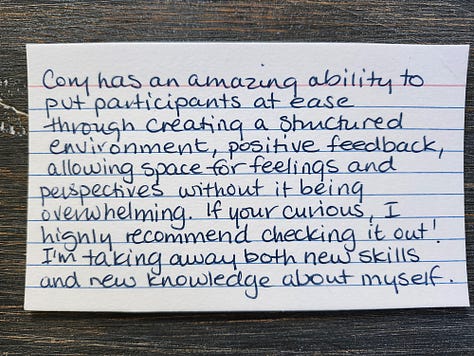 Cory has an amazing ability to
put participants at ease
through creating a structured
environment, positive feedback,
allowing space for feelings and
perspectives without it being
overwhelming. If your curious, I
highly recommend checking it out!
I'm taking away both new skills
and new knowledge about myself.